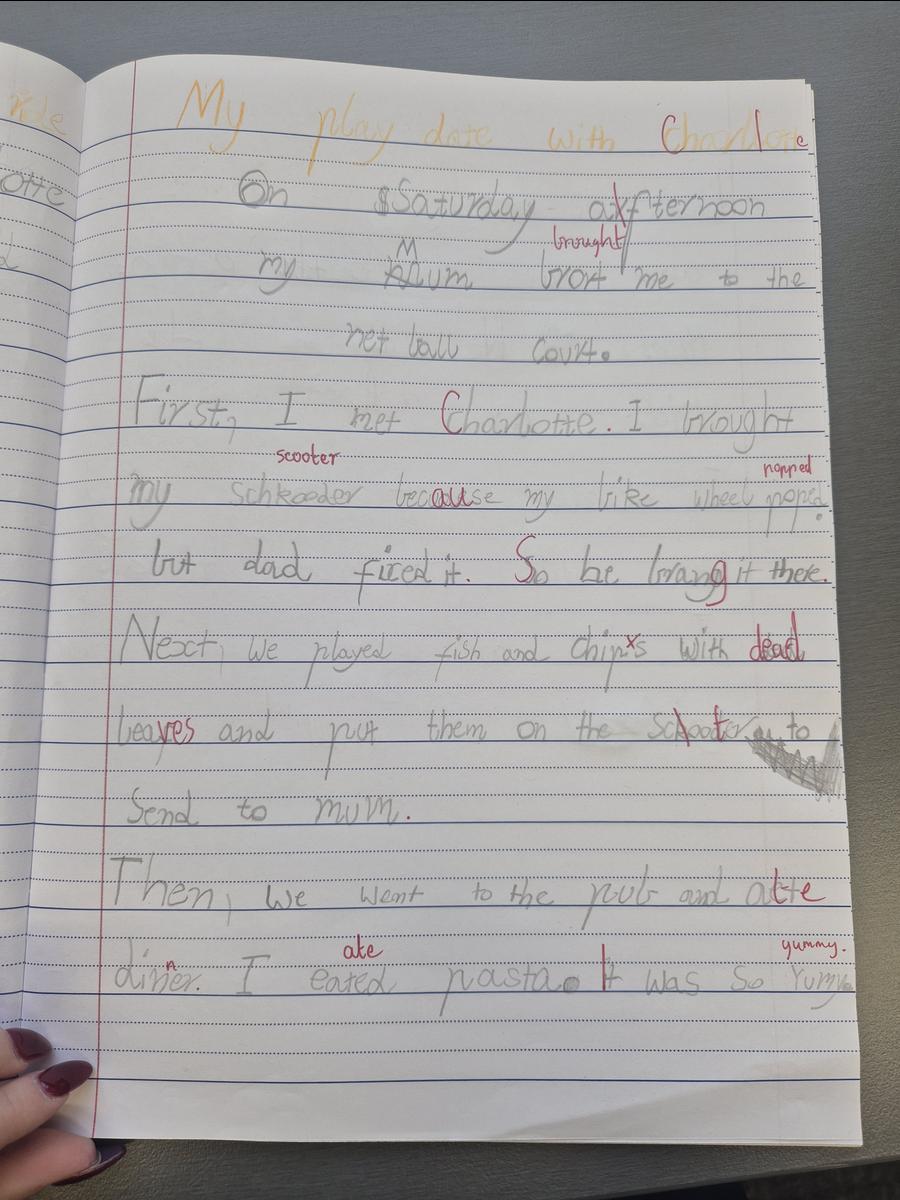 ride
otte
d
My play date with Charlotte
On Saturday afternoon
brought
my Mum brort me to the
net ball court.
First, I met Charlotte. I brought
scooter
popped
my schkooder because my bike wheel poped.
but dad fixed it. So he brang it there.
Next, we played fish and chips with dead
leaves and put them on the scooter to
Send to mum.
Then, we went to the pub and atte
ate
yummy.
n
diner. I eated pasta. It was so Yumy.